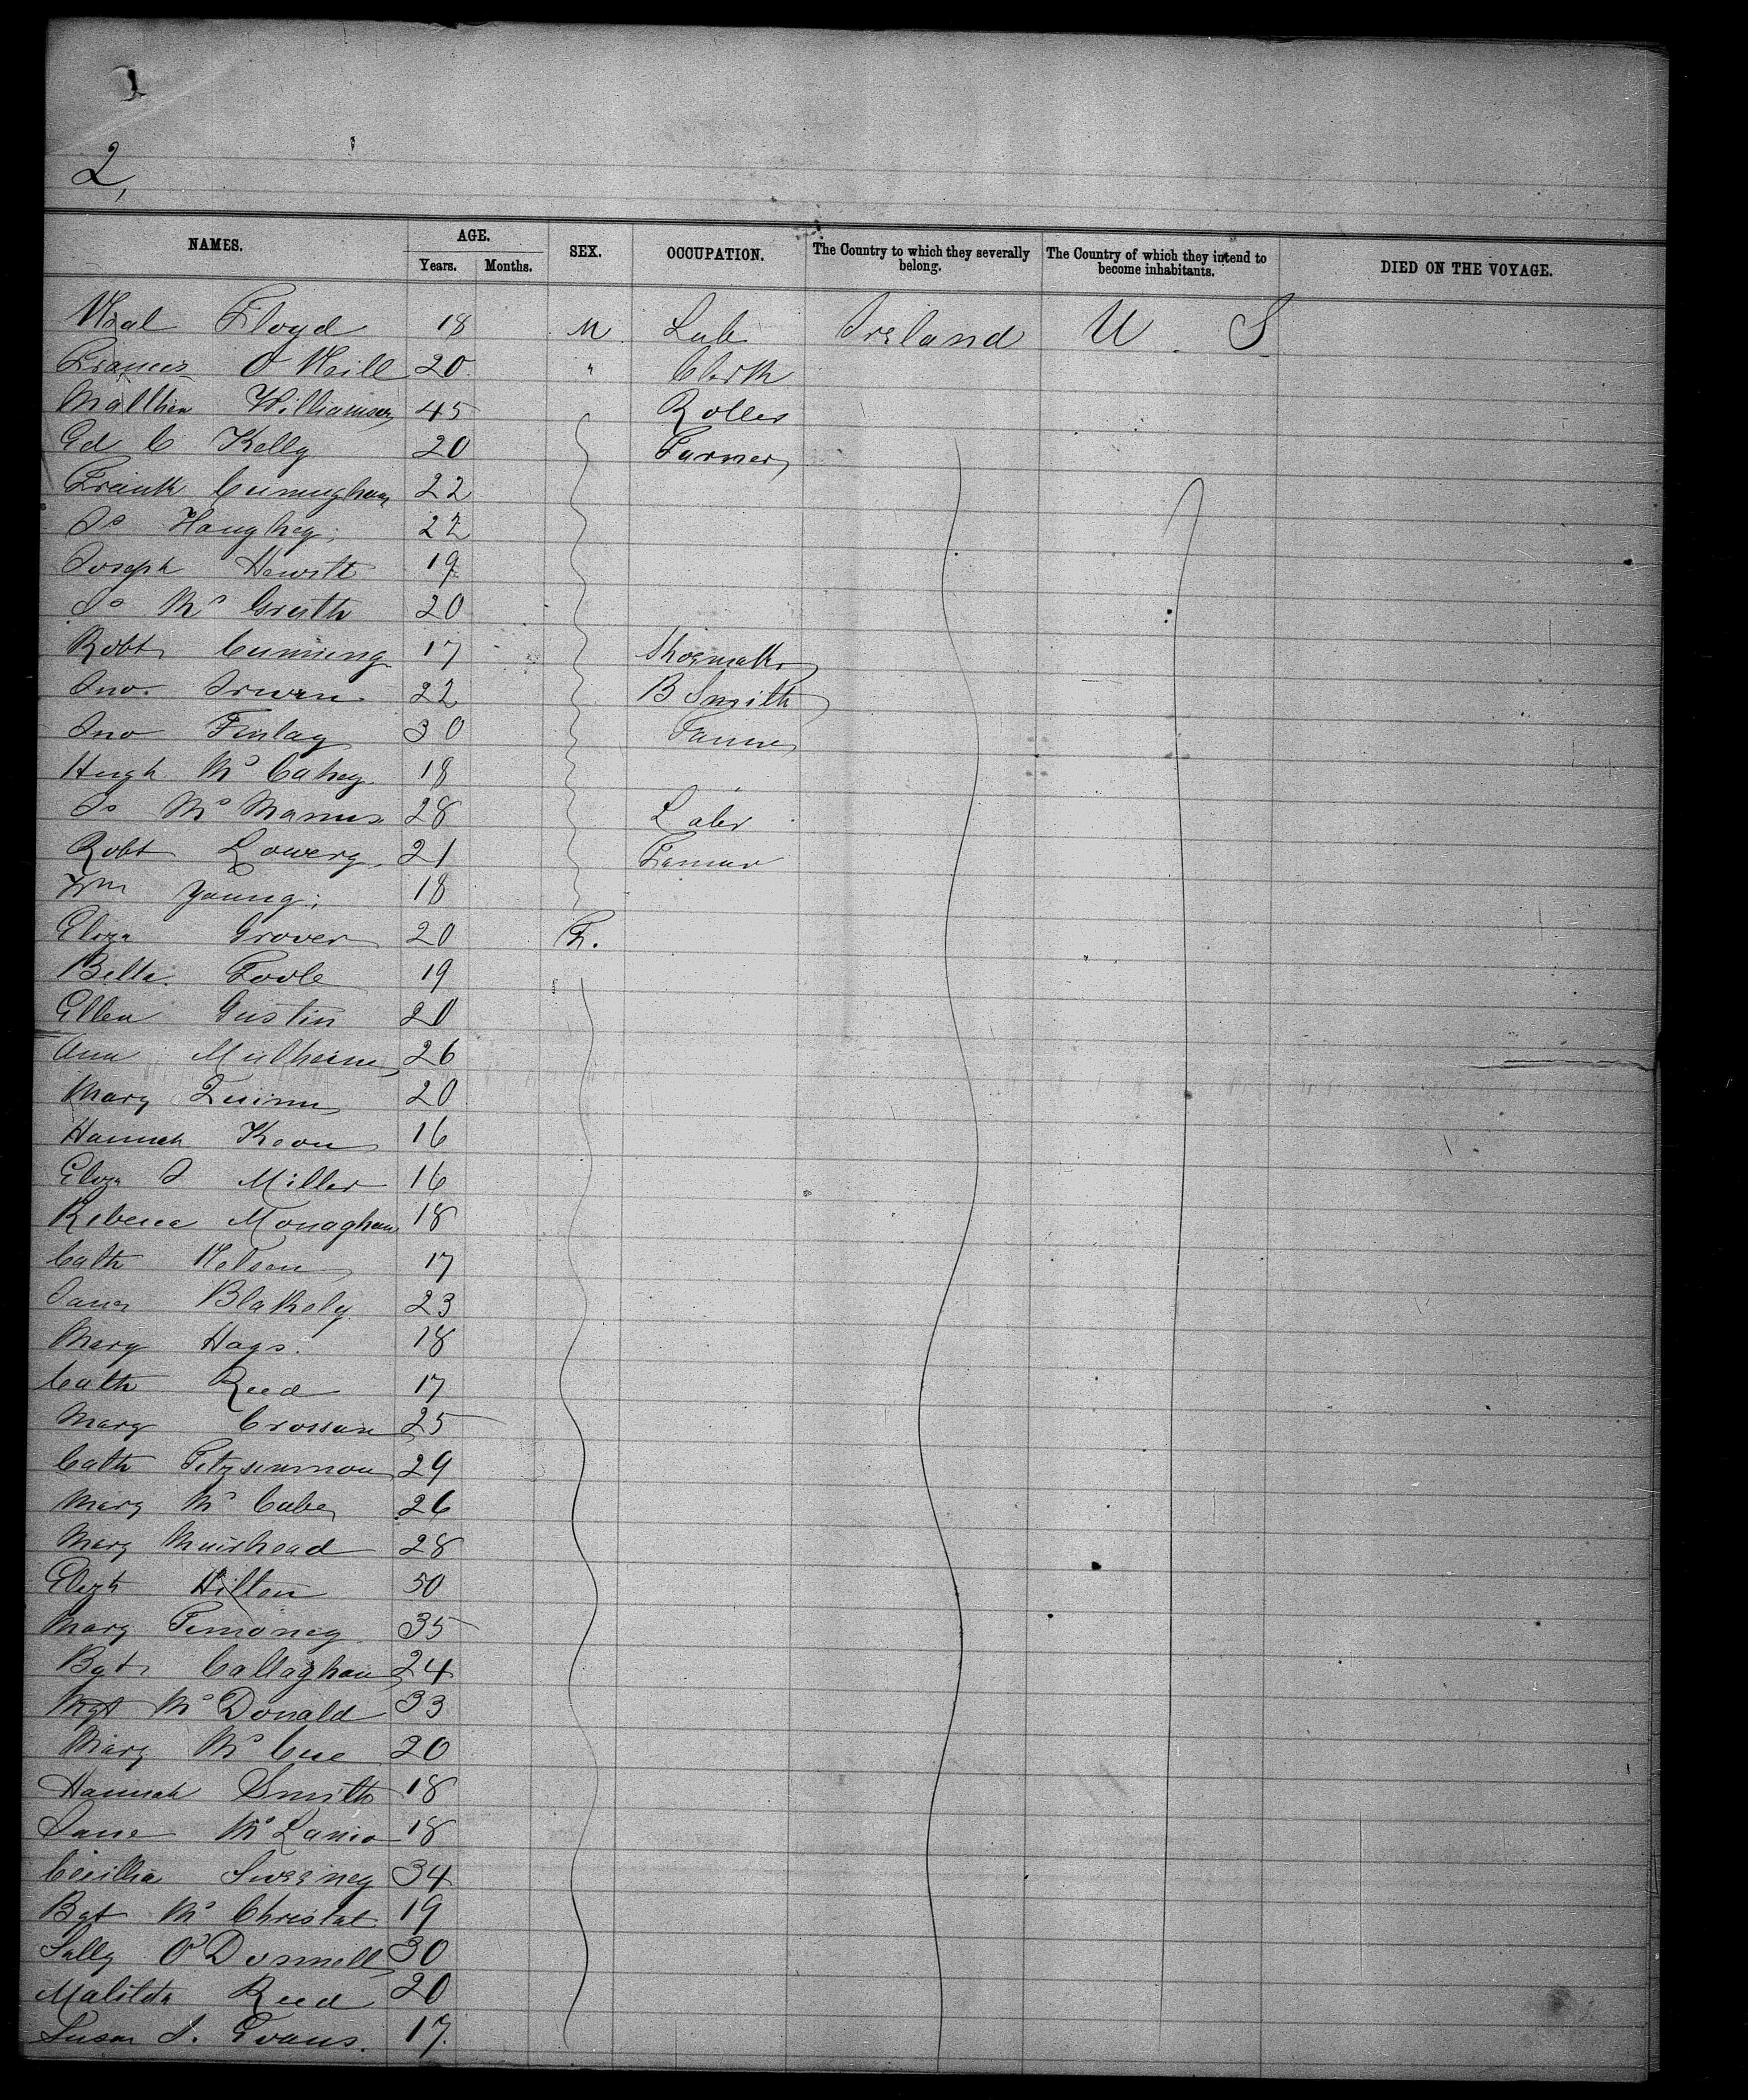 2,
NAMES. AGE. SEX. OCCUPATION. The Country to which they severally belong. The Country of which they intend to become inhabitants. DIED ON THE VOYAGE.
Years. Months.
Floyd 18 M Lab Ireland U. S
Frances O Neill 20 " Clerk
Matthew Williamson 45 Roller
Ed C Kelly 20 Farmer
Frank Cunningham 22
Js Haughey 22
Joseph Hewitt 19
Js Mc Grath 20
Robt Cumming 17 Shoemaker
Jno. Irwin 22 B Smith
Jno Finlay 30 Farmer
Hugh Mc Cahey 18
Js Mc Manus 28 Labr
Robt Lowery 21 Farmer
Wm Young 18
Eliza Grover 20 F.
Bella Toole 19
Ellen Gustin 20
Ann Mulhern 26
Mary Quinn 20
Hannah Keon 16
Eliza J Miller 16
Rebecca Monaghan 18
Cath Nelson 17
Jane Blakely 23
Mary Hays 18
Cath Reed 17
Mary Crossan 25
Cath Fitzsimmon 29
Mary Mc Cabe 26
Mary Muirhead 28
Elizth Hilton 50
Mary Timoney 35
Bgt Callaghan 24
Mgt Mc Donald 33
Mary Mc Cue 20
Hannah Smith 18
Jane Mc 18
Cecillia Sweeney 34
Bgt Mc Christal 19
Sally O'Donnell 30
Matilda Reed 20
Susan J. Evans. 17.